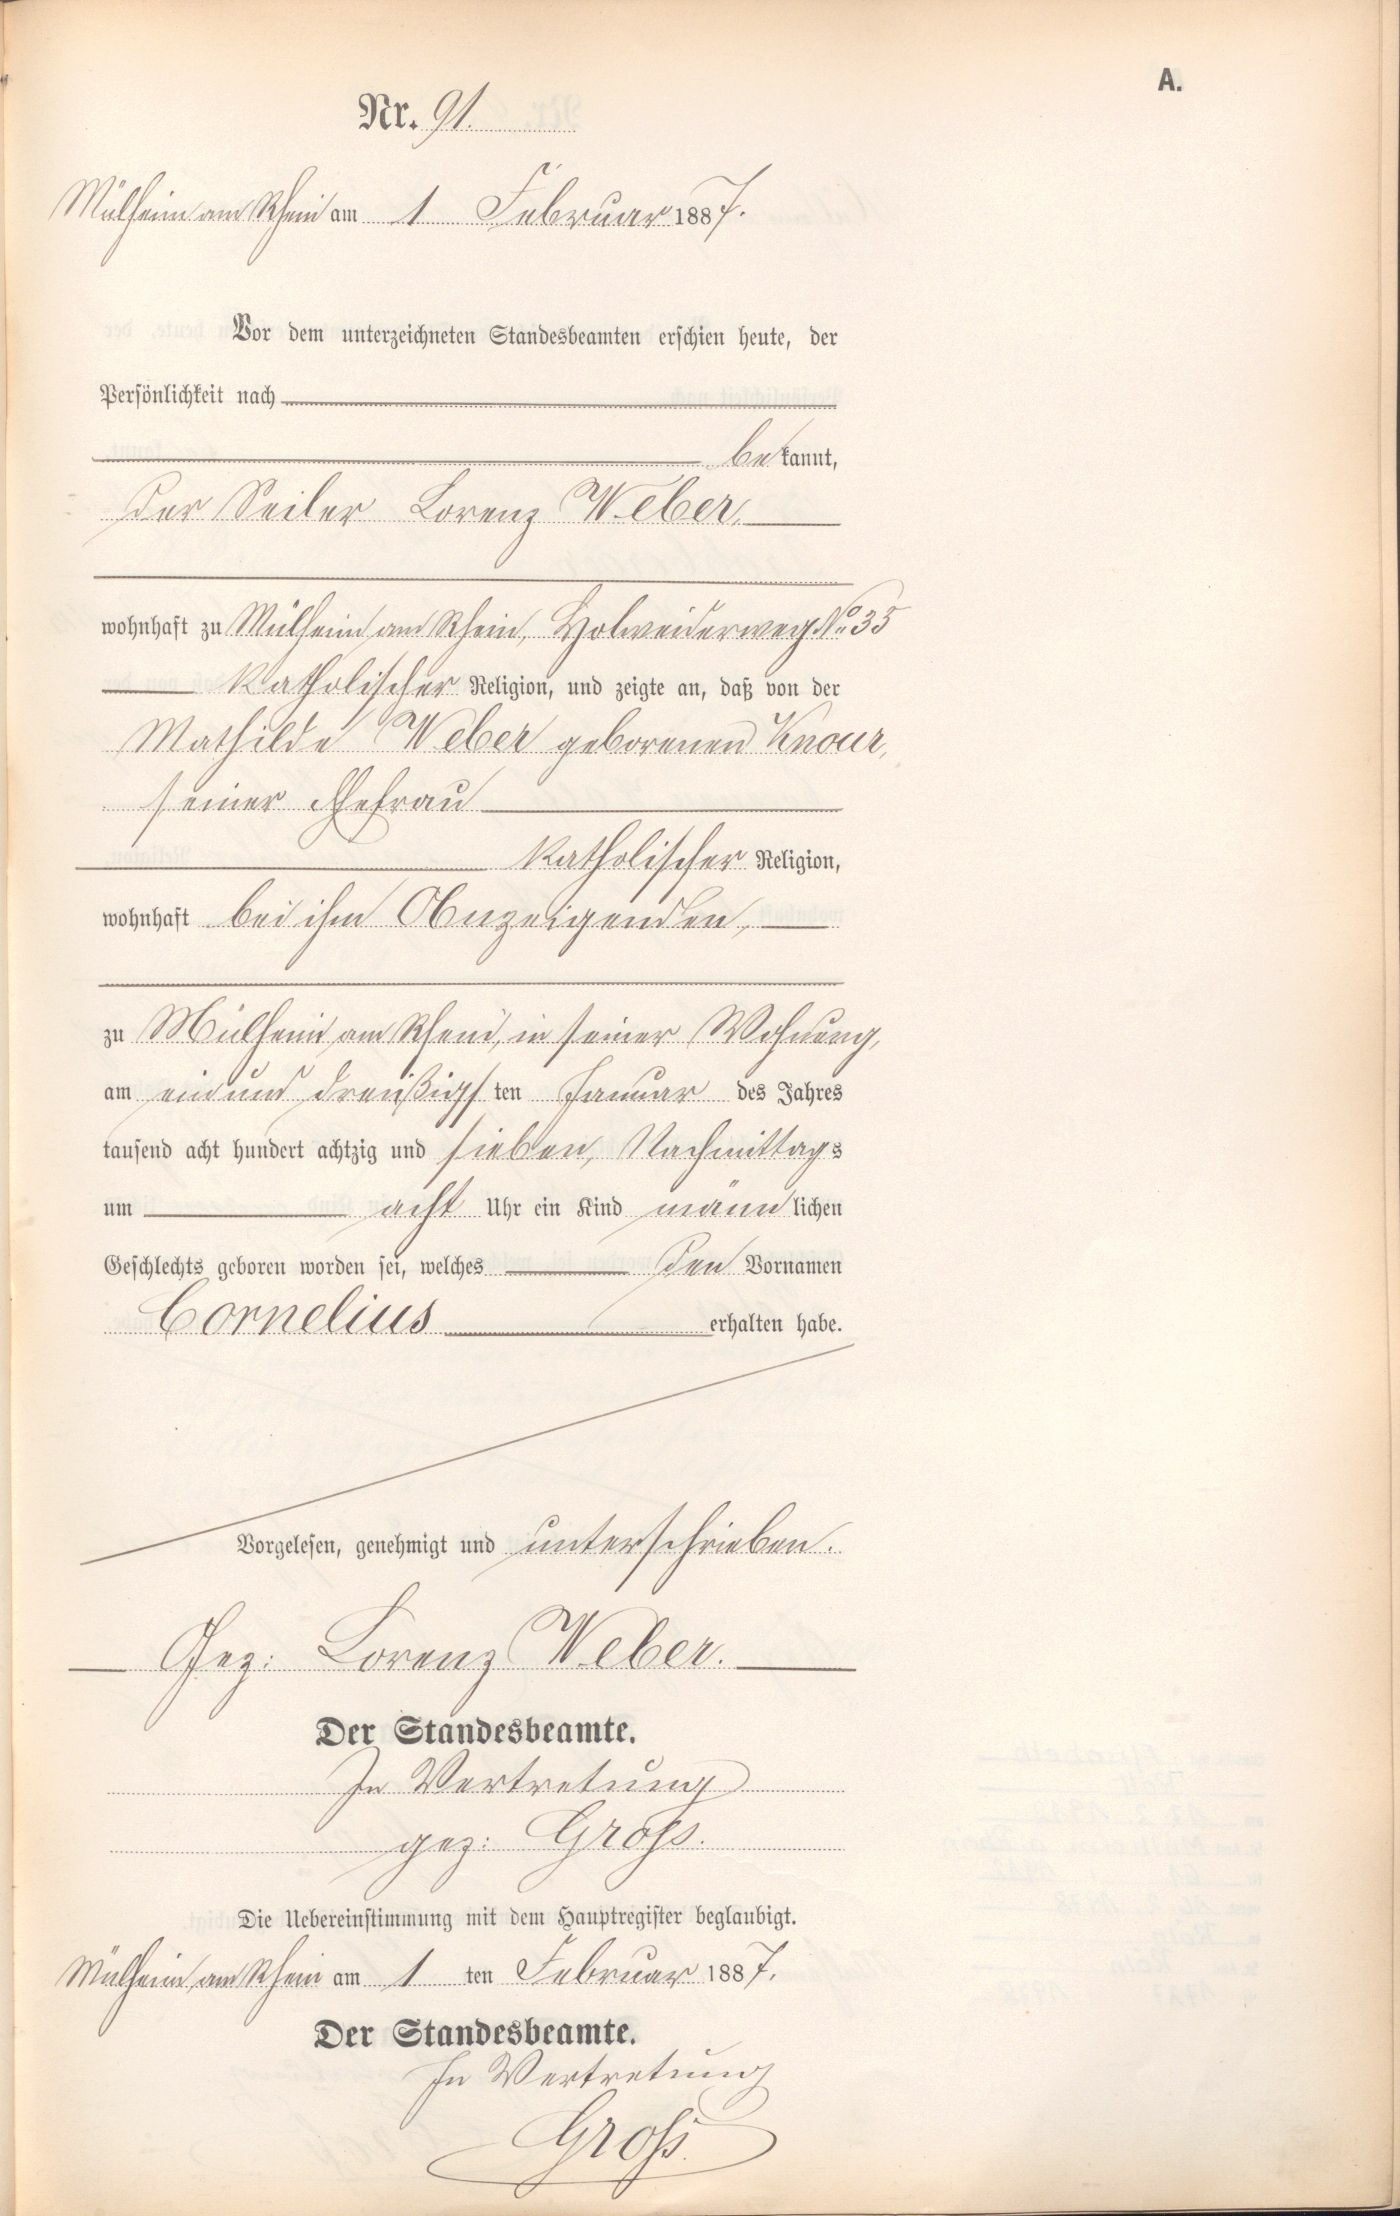 A.
Nr. 91.
Mülheim am Rhein am 1 Februar 1887.
Vor dem unterzeichneten Standesbeamten erschien heute, der
Persönlichkeit nach
bekannt,
der Seiler Lorenz Weber,
wohnhaft zu Mülheim am Rhein, Holweiderweg No 35
katholischer Religion, und zeigte an, daß von der
Mathilde Weber geborenen Knour,
seiner Ehefrau
katholischer Religion,
wohnhaft bei ihm Anzeigenden,
zu Mülheim am Rhein, in seiner Wohnung,
am ein und dreißigsten Januar des Jahres
tausend acht hundert achtzig und sieben, Nachmittags
um acht Uhr ein Kind männlichen
Geschlechts geboren worden sei, welches den Vornamen
Cornelius erhalten habe.
Vorgelesen, genehmigt und unterschrieben.
Gez: Lorenz Weber.
Der Standesbeamte.
In Vertretung
gez: Groß.
Die Uebereinstimmung mit dem Hauptregister beglaubigt.
Mülheim am Rhein am 1 ten Februar 1887.
Der Standesbeamte.
In Vertretung
Groß.